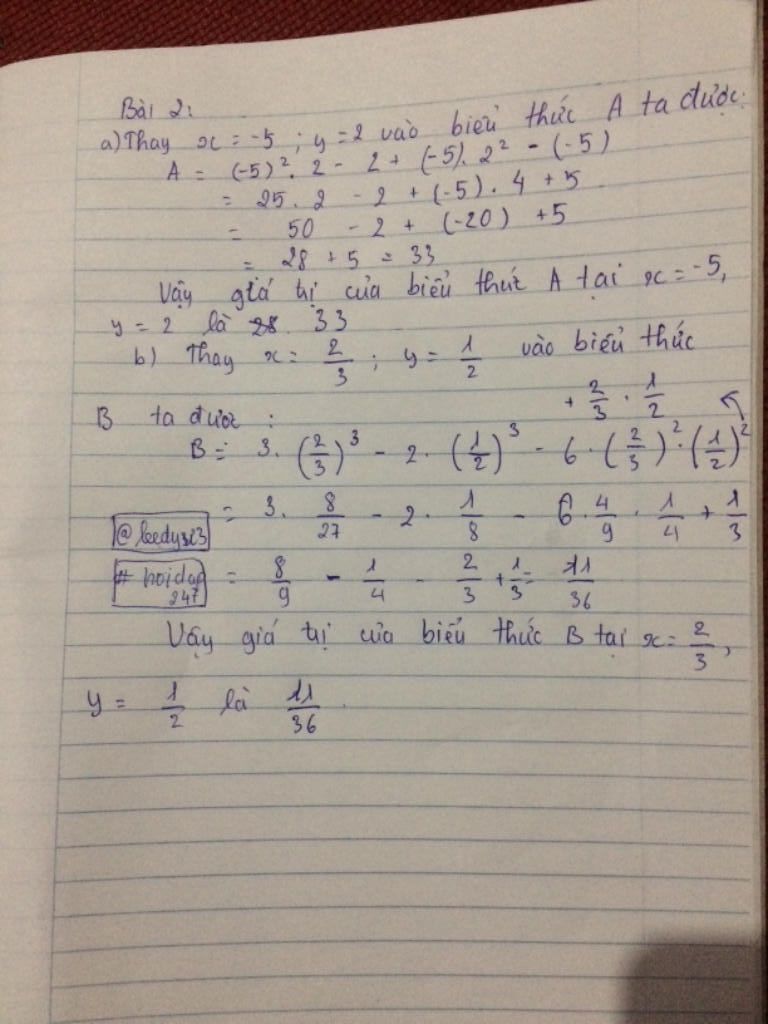 Bài 2:
a) Thay x = -5 ; y = 2 vào biểu thức A ta được:
A = (-5)². 2 - 2 + (-5). 2² - (-5)
= 25 . 2 - 2 + (-5) . 4 + 5
= 50 - 2 + (-20) + 5
= 28 + 5 = 33
Vậy giá trị của biểu thức A tại x = -5,
y = 2 là 33
b) Thay x = 2/3 ; y = 1/2 vào biểu thức
B ta được :
+ 2/3 . 1/2
B = 3 . (2/3)³ - 2 . (1/2)³ - 6 . (2/3)² . (1/2)²
= 3 . 8/27 - 2 . 1/8 - 6 . 4/9 . 1/4 + 1/3
@leedysi3
= 8/9 - 1/4 - 2/3 + 1/3 = 11/36
# hoidap
247
Vậy giá trị của biểu thức B tại x = 2/3,
y = 1/2 là 11/36.